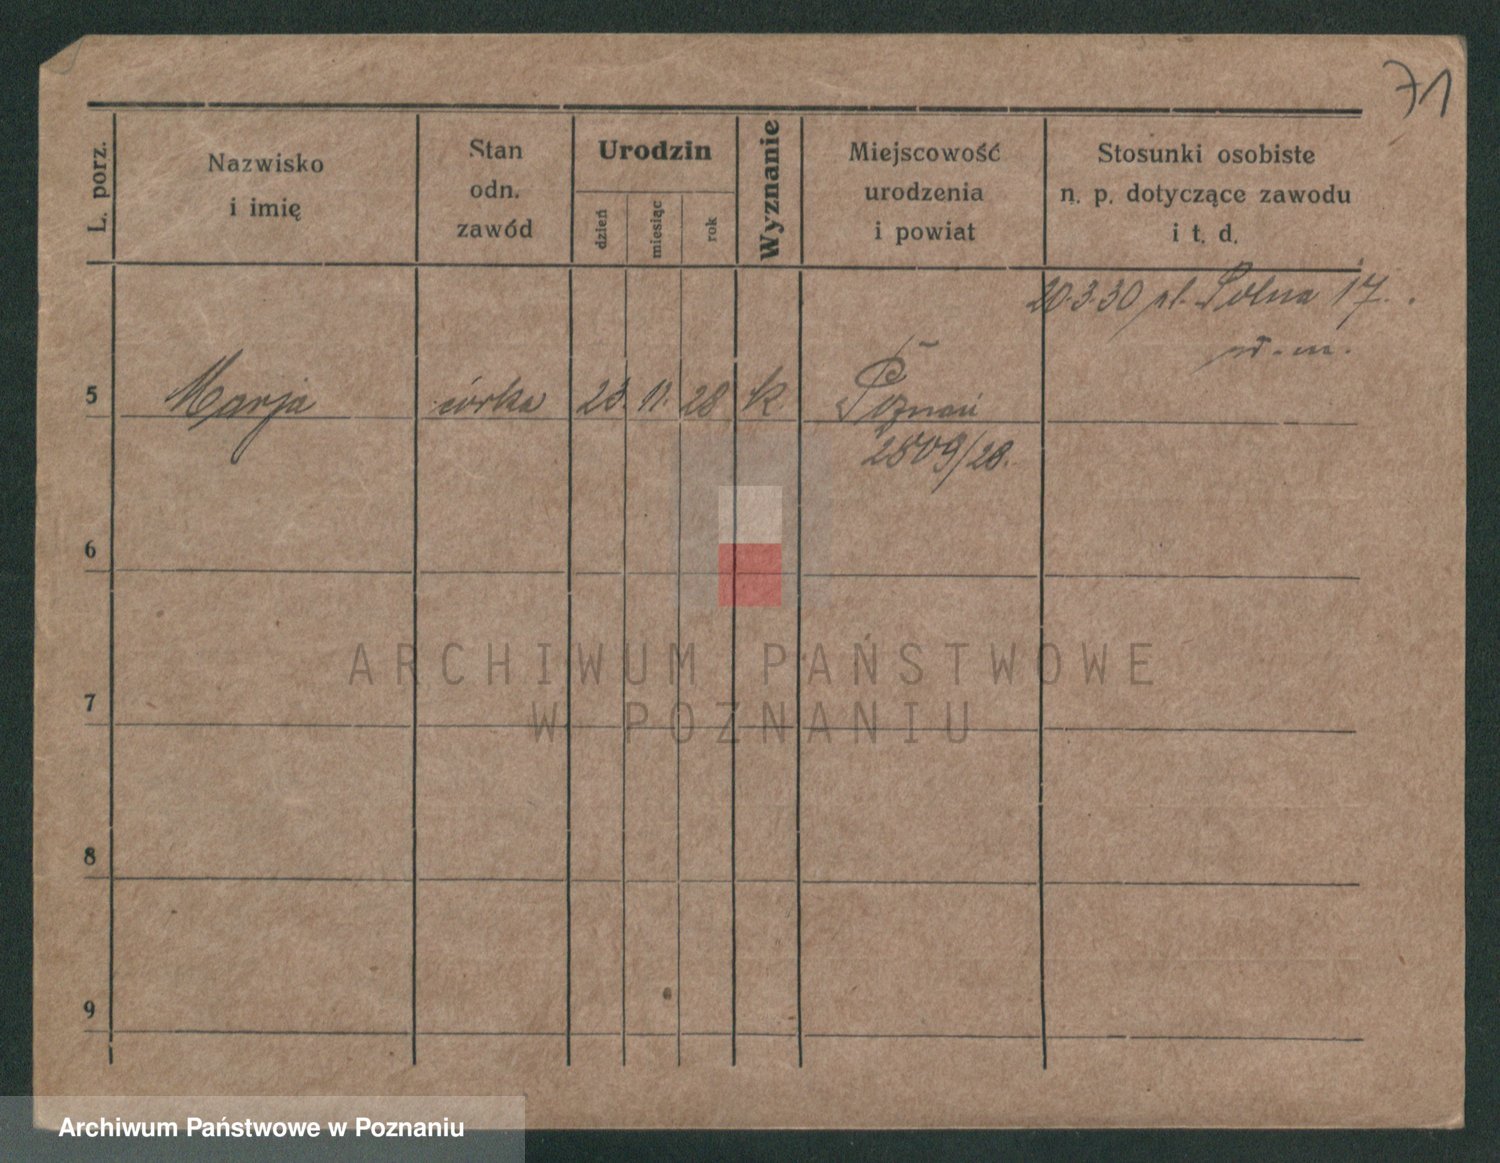 71
L. porz.
Nazwisko
i imię
Stan
odn.
zawód
Urodzin
dzień
miesiąc
rok
Wyznanie
Miejscowość
urodzenia
i powiat
Stosunki osobiste
n. p. dotyczące zawodu
i t. d.
20.3.30 pl. Solna 17.
5 Marja córka 23. 11. 28 k. Poznań
2509/28.
6
7
8
9
ARCHIWUM PAŃSTWOWE
W POZNANIU
Archiwum Państwowe w Poznaniu